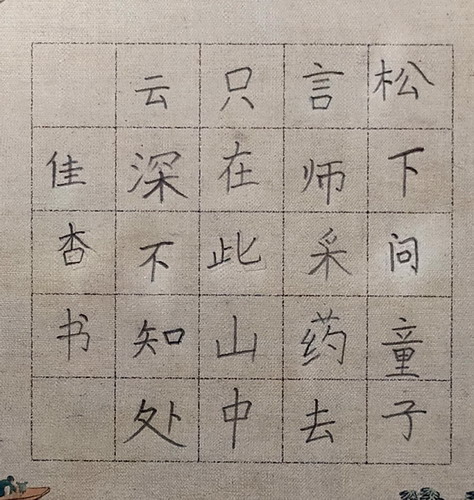 松下问童子
言师采药去
只在此山中
云深不知处
佳杏书